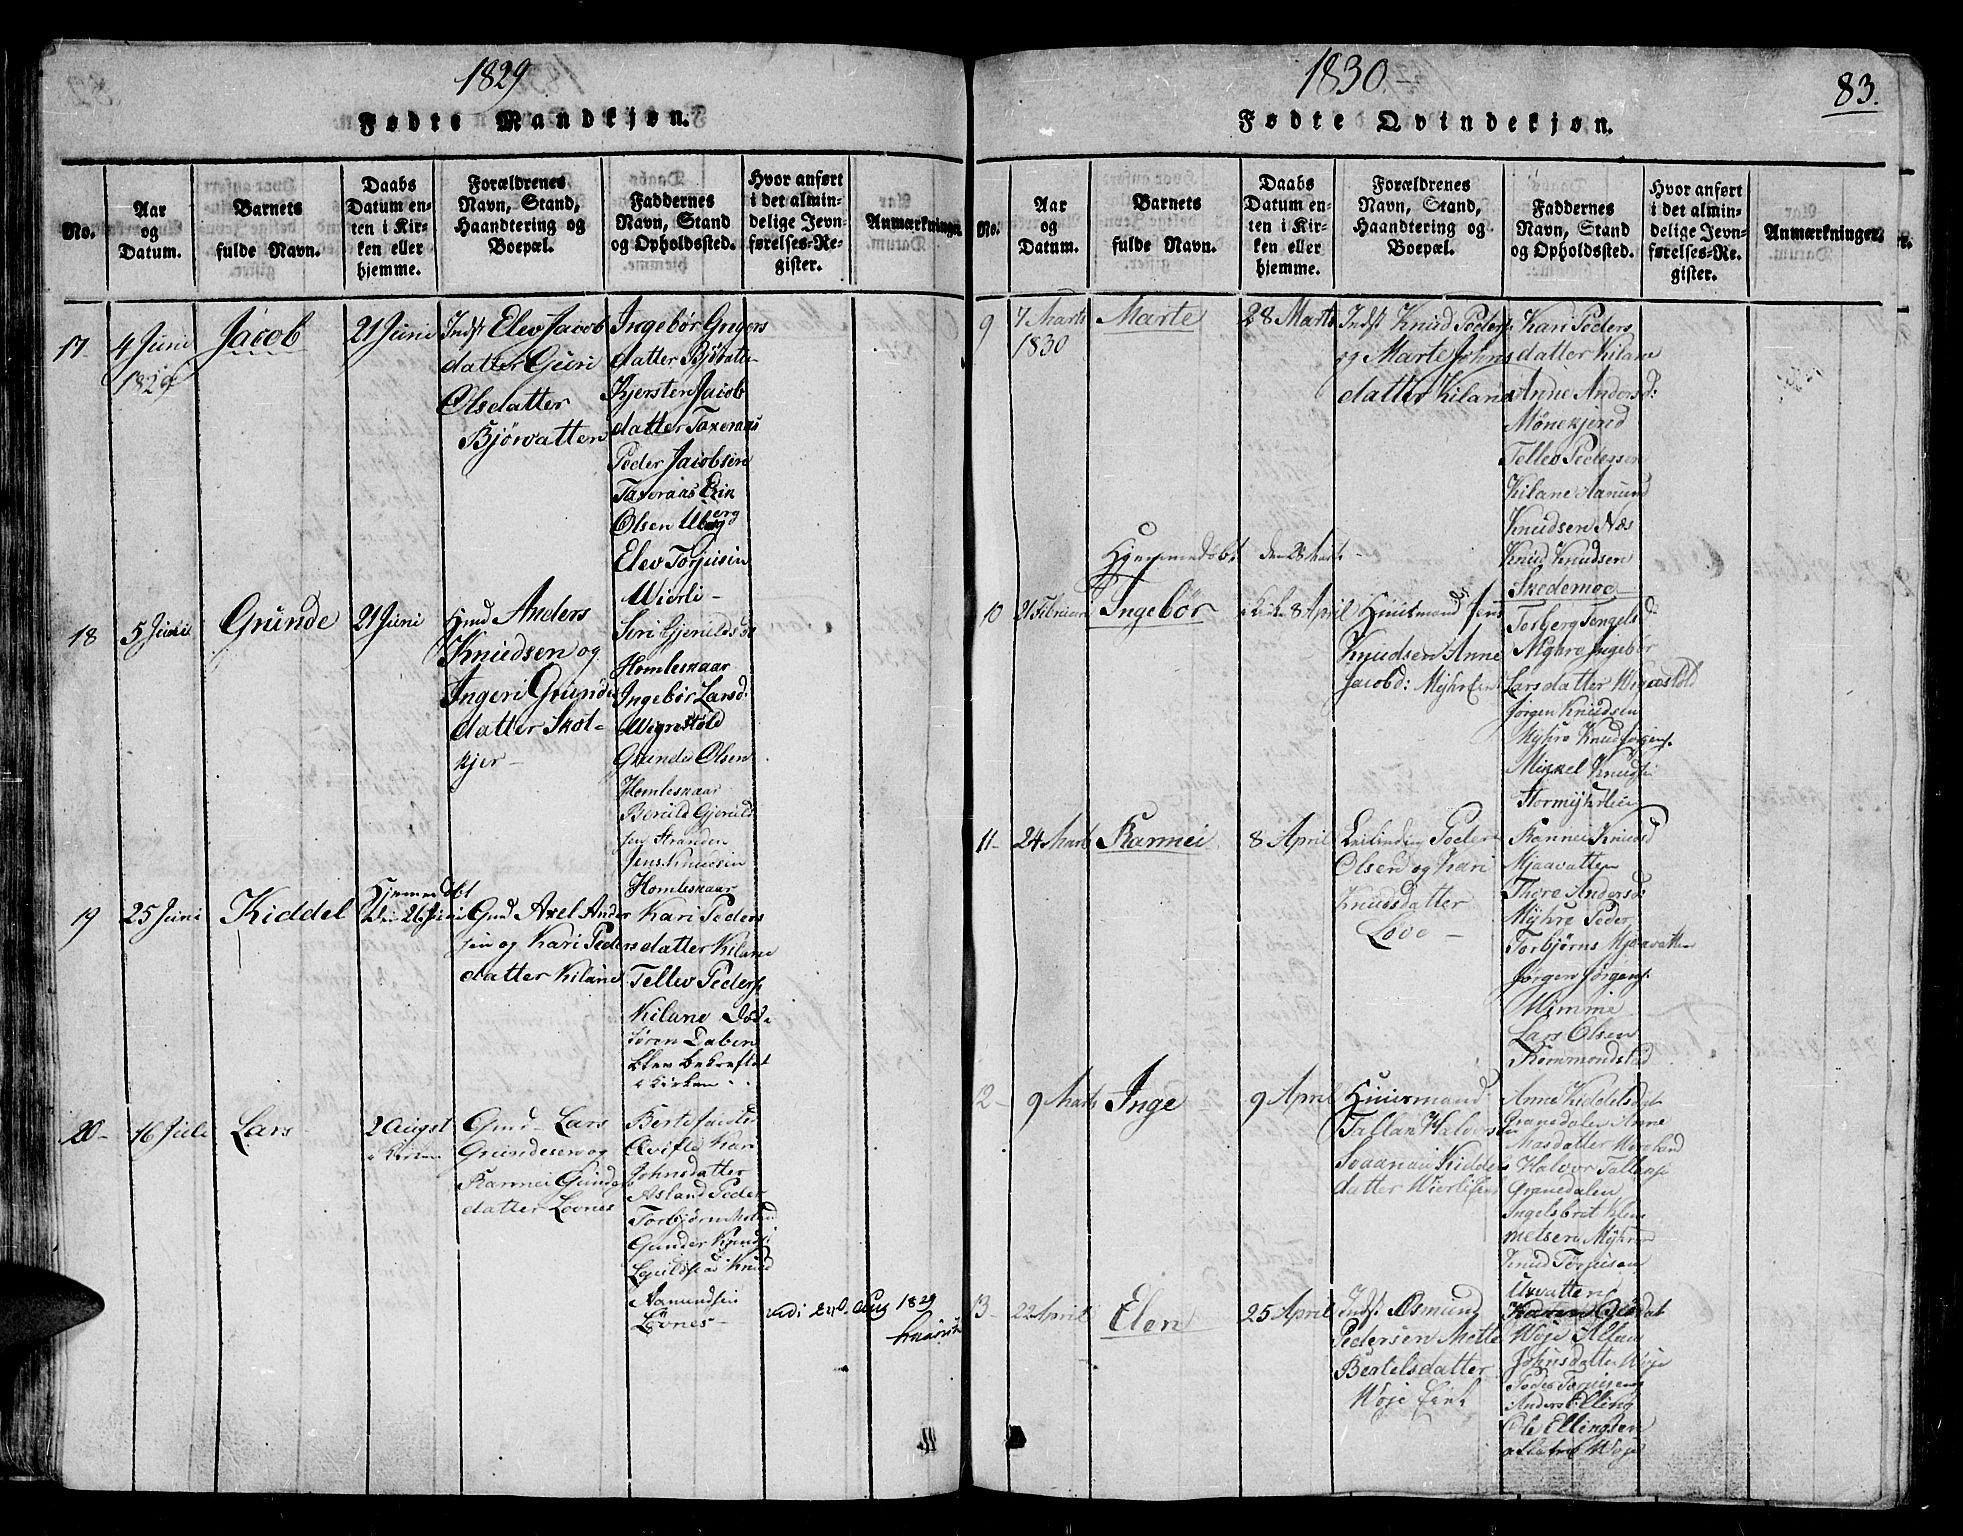 1829
Fødte Mandkjøn.
No.
Aar og Datum.
Barnets fulde Navn.
Daabs Datum enten i Kirken eller hjemme.
Forældrenes Navn, Stand, Haandtering og Boepæl.
Faddernes Navn, Stand og Opholdssted.
Hvor anført i det almindelige Jevnførelses-Register.
Anmærkninger.
17
4 Juni
1829
Jacob
21 Juni
Indst Elev Jacob
datter Guri
Olsdatter
Bjørvatten
Ingebør
datter
Kjersten Jacob
datter Taxeraas
Peder Jacobsen
Taxeraas
Olsen
Elev Torjusen
Wierli
18
5 Juni
Grunde
21 Juni
Gmd Anders
Knudsen og
Ingeri Grunde
datter Skot
kjer
Siri Gjeruldsd
Homlesnaar
Ingebør Larsd:
Wigrestøld
Grunde Olsen
Homlesnaar
Beruld Gjeruld
sen Stranden
Jens Knudsen
Homlesnaar
19
25 Juni
Kiddel
Hjemmedøbt
den 26 Juni
Gmd Axel Ander
sen og Kari Peders
datter Kilane
Kari Peders
datter Kilane
Tellev Peders
Kilane
bekreftet
i Kirken
20
16 Juli
Lars
2 Augst
i Kirken
Gmd Lars
Grundesen og
Rannei Gunde
datter Lovnes
Kari
Johnsdatter
Asland Peder
Torbjørn
Gunder Knuds
Knud
Aamundsen
Lovnes
Aug 1829
1830
83.
Fødte Qvindekjøn.
No.
Aar og Datum.
Barnets fulde Navn.
Daabs Datum enten i Kirken eller hjemme.
Forældrenes Navn, Stand, Haandtering og Boepæl.
Faddernes Navn, Stand og Opholdssted.
Hvor anført i det almindelige Jevnførelses-Register.
Anmærkninger.
9
7 Marts
1830
Marte
28 Marts
Indst Knud Peders
og Marte Johns
datter Kilane
Kari Peders
datter Kilane
Anne Andersd:
Mønekjend
Tellev Pedersen
Kilane Aamund
Knudsen Næs
Knud Knudsen
Skedemoe
Hjemmedøbt den 28 Marts
10
21 Februar
Ingebør
i Kirk 8 April
Huusmand Jens
Knudsen Anne
Jacobd: Myhren
Torberg Tengelsd
Myhre Ingebør
Larsdatter Wigrestøld
Jørgen Knudsen
Myhre Knud Jørgens.
Mikkel Knudsen
Stormyhrlien
11
24 Marts
Rannei
8 April
Leilending Peder
Olsen og Kari
Knudsdatter
Love
Rannei Knudsd
Mjaavatten
Thore Andersd:
Myhre Peder
Torbjørns Mjaavatten
Jørgen Jørgens.
Mimme
Lars Olsen
Rommondstad
12
9 Marts
Inge
9 April
Huusmand
Tallak Halvorsen
Svaanau Kiddels
datter Wierli
Anne Kiddelsdat
Granedalen Anne
Aasdatter
Halvor Tallens
Granedalen
Ingelsbret Klem
metsen Myhren
Knud Torjusen
Uxvatten
13
22 April
Elen
25 April
Indst Osmund
Pedersen Mette
Bertelsdatter
Woje
Woje
Johnsdatter Woje
Peder Torjusen
Anders Elling
Ole Ellingsen
Woje